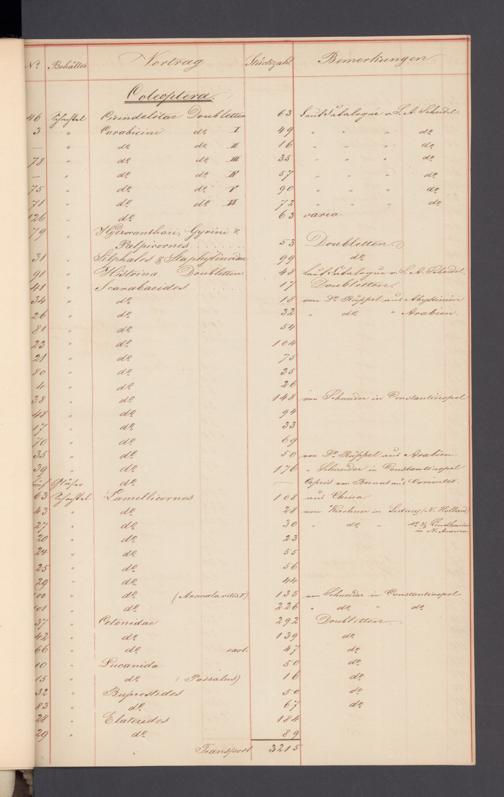 No. Behälter Vortrag Stückzahl Bemerkungen
Coleoptera
46 Schachtel Cicindelidae Doubletten 63 laut Catalogue v.
3 " Carabicine do I 49 " " " do
— " do do II 16 " " " do
78 " do do III 35 " " " do
— " do do IV 57 " " " do
75 " do do V 90 " " " do
71 " do do VI 72 " " " do
126 " do 63 varia
79 " Hydrocanthari, Gyrini &
Palpicornes 53 Doubletten
31 " Silphales & Staphylinidae 99 do
91 " Histrina Doubletten 48 laut Catalogue v.
41 " Scarabaeides 17 Doubletten
34 " do 18 von Dr. Rüppel aus Abyssinien
26 " do 32 " do " Arabien
81 " do 54
22 " do 104
21 " do 75
80 " do 25
4 " do 26
38 " do 148 von Schneider in Constantinopel
48 " do 94
17 " do 33
70 " do 69
35 " do 50 von Dr. Rüppel aus Arabien
39 " do 176 " Schneider in Constantinopel
Gläser do —
63 Schachtel Lamellicornes 108 aus China
43 " do 28 von Kirchner in Sidney (N. Holland)
27 " do 30 " do "
20 " do 23
24 " do 55
25 " do 56
29 " do 44
" do 135 von Schneider in Constantinopel
" do 226 " do " do
37 " Cetonidae 292 Doubletten
42 " do 139 do
66 " do 47 do
10 " Lucanida 50 do
15 " do (Passalus) 16 do
32 " Buprestides 50 do
83 " do 67 do
28 " Elaterides 184
29 " do 89
Transport 3215